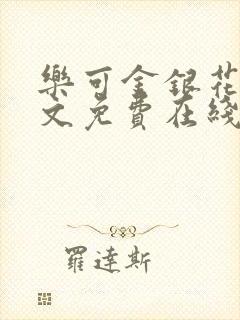 樂可金銀花
文免費在綫
羅達斯